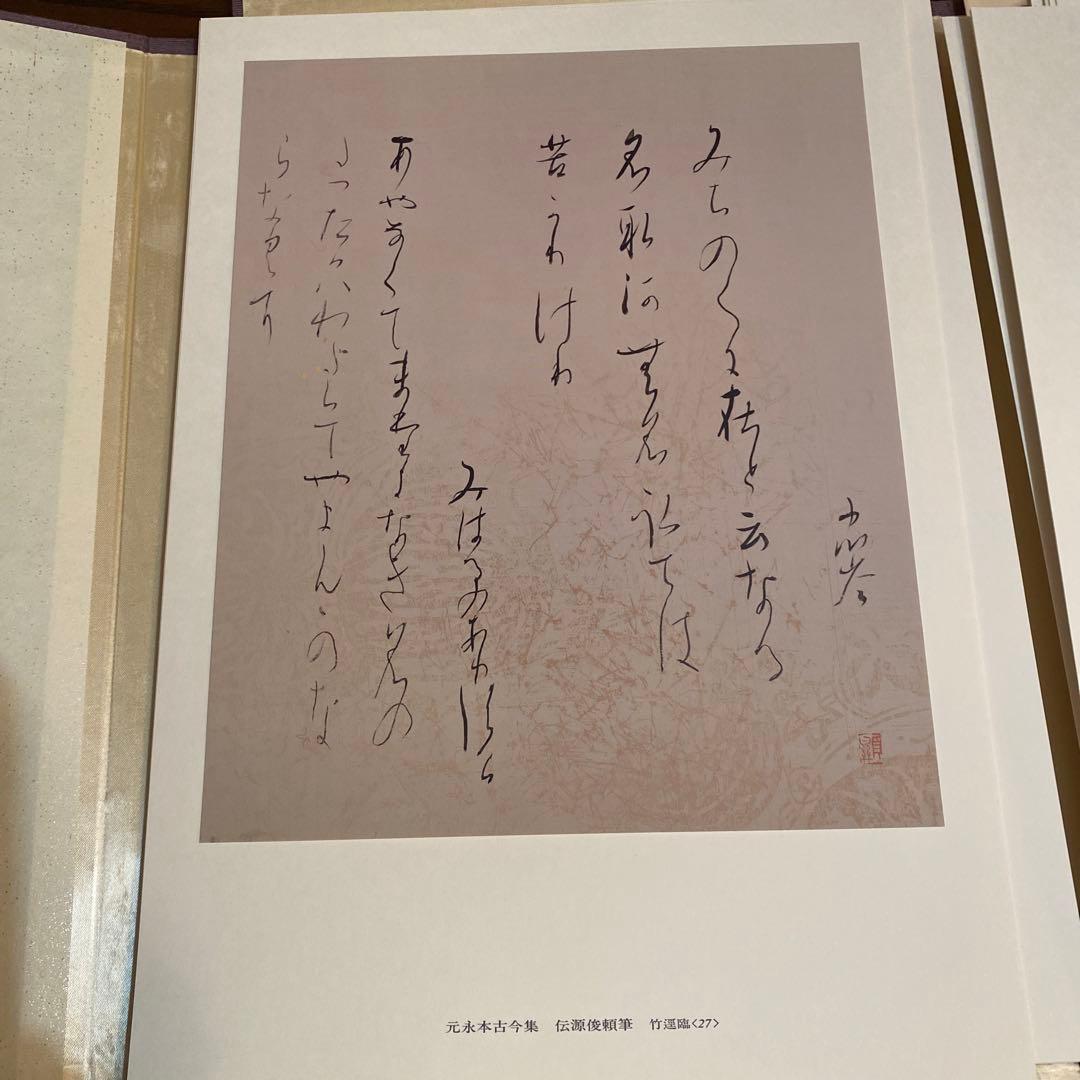 忠岑
みちのくに在と云なる
名取河無名取ては
苦かりけり
みはるのありすけ
あやなくてまたきになき名の
たつたかはわたらてやまんものな
らなくに
元永本古今集 伝源俊頼筆 竹逕臨<27>